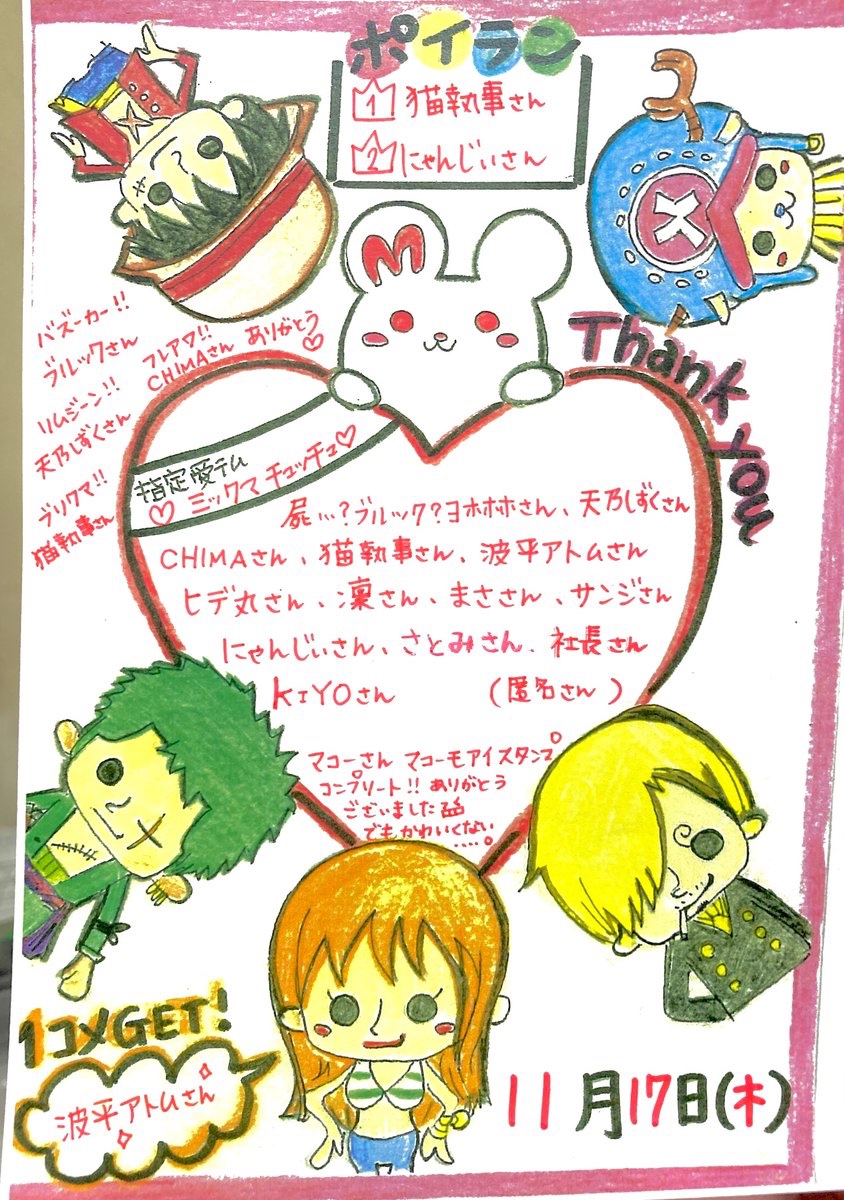 ポイラン
1 猫執事さん
2 にゃんじぃさん
M
Thank you
バズーカー!!
ブルックさん
フレアワ!!
CHIMAさん ありがとう♡
リムジーン!!
天乃しずくさん
ブリクマ!!
猫執事さん
指定愛テム
♡ ミックマ チュッチュ♡
屍...?ブルック?ヨホホホさん、天乃しずくさん
CHIMAさん、猫執事さん、波平アトムさん
ヒデ丸さん、凜さん、まささん、サンジさん
にゃんじぃさん、さとみさん、社長さん
KIYOさん (匿名さん)
マコーさん マコーモアイスタンプ
コンプリート!! ありがとう
ございました
でもかわいくない
....。
1コメGET!
波平アトムさん
11月17日(木)